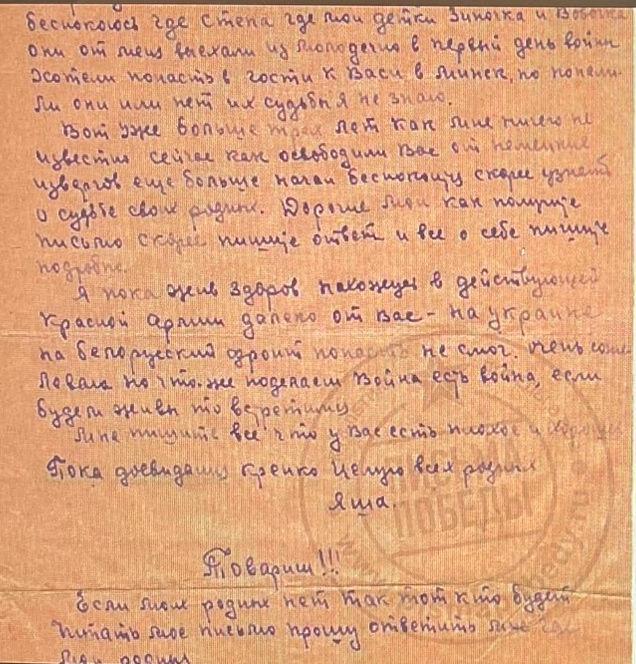 беспокоюсь где Степа где мои детки Зиночка и Вовочка
они от меня выехали из Молодечно в первый день войны
Хотели попасть в гости к Васи в Минск, но попали
ли они или нет их судьбы я не знаю.
Вот уже больше трех лет как мне ничего не
известно сейчас как освободили Вас от немецких
извергов еще больше начал беспокоится скорее узнать
о судьбе своих родных. Дорогие мои как получите
письмо скорее пишите ответ и все о себе пишите
подробно.
Я пока жив здоров нахожусь в действующей
Красной армии далеко от Вас - на Украине
на белорусский фронт попасть не смог. очень
но что-же поделаеш война есть война, если
будем живы то встретимся
Мне пишите все что у Вас есть плохое и хорошее
Пока досвидания крепко целую всех родных
Яша.
ПИСЬМА
ПОБЕДЫ
Товарищ!!!
Если моих родных нет так тот кто будет
читать мое письмо прошу ответить мне где
мои родные